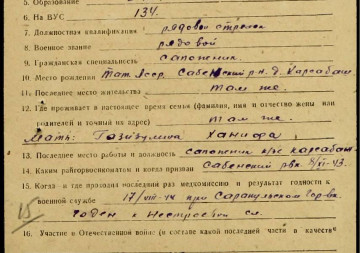 5. Образование
6. На ВУС 134.
7. Должностная квалификация рядовой стрелок
8. Военное звание рядовой
9. Гражданская специальность сапожник.
10. Место рождения Тат. Асср. Сабенский р-н. д. Карсабаш
11. Последнее место жительства Там же.
12. Где проживает в настоящее время семья (фамилия, имя и отчество жены или
родителей и точный их адрес) Там же.
Мать: Газизулина Ханифа
13. Последнее место работы и должность сапожник к/с Карсабаш
14. Каким райгорвоенкоматом и когда призван Сабенский рвк 8/VI-43.
15. Когда и где проходил последний раз медкомиссию и результат годности к
военной службе 17/VIII-44 при Сарапульском Гор-вк
Годен к нестроевой сл.
15
16. Участие в Отечественной войне (в составе какой последней части в качестве